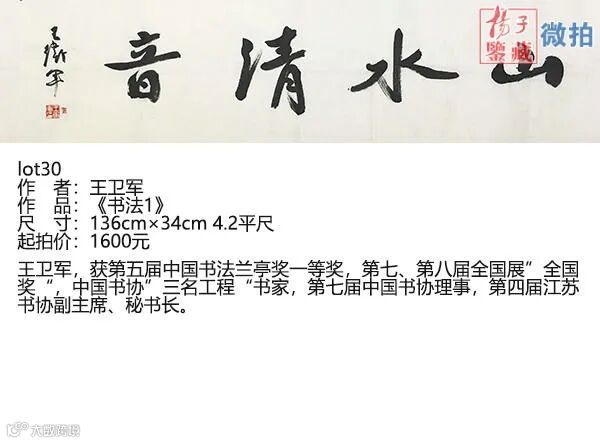 山水清音
王衛軍
揚子
鑒藏
微拍
lot30
作 者：王卫军
作 品：《书法1》
尺 寸：136cm×34cm 4.2平尺
起拍价：1600元
王卫军，获第五届中国书法兰亭奖一等奖，第七、第八届全国展”全国
奖“，中国书协”三名工程“书家，第七届中国书协理事，第四届江苏
书协副主席、秘书长。
大数跨境